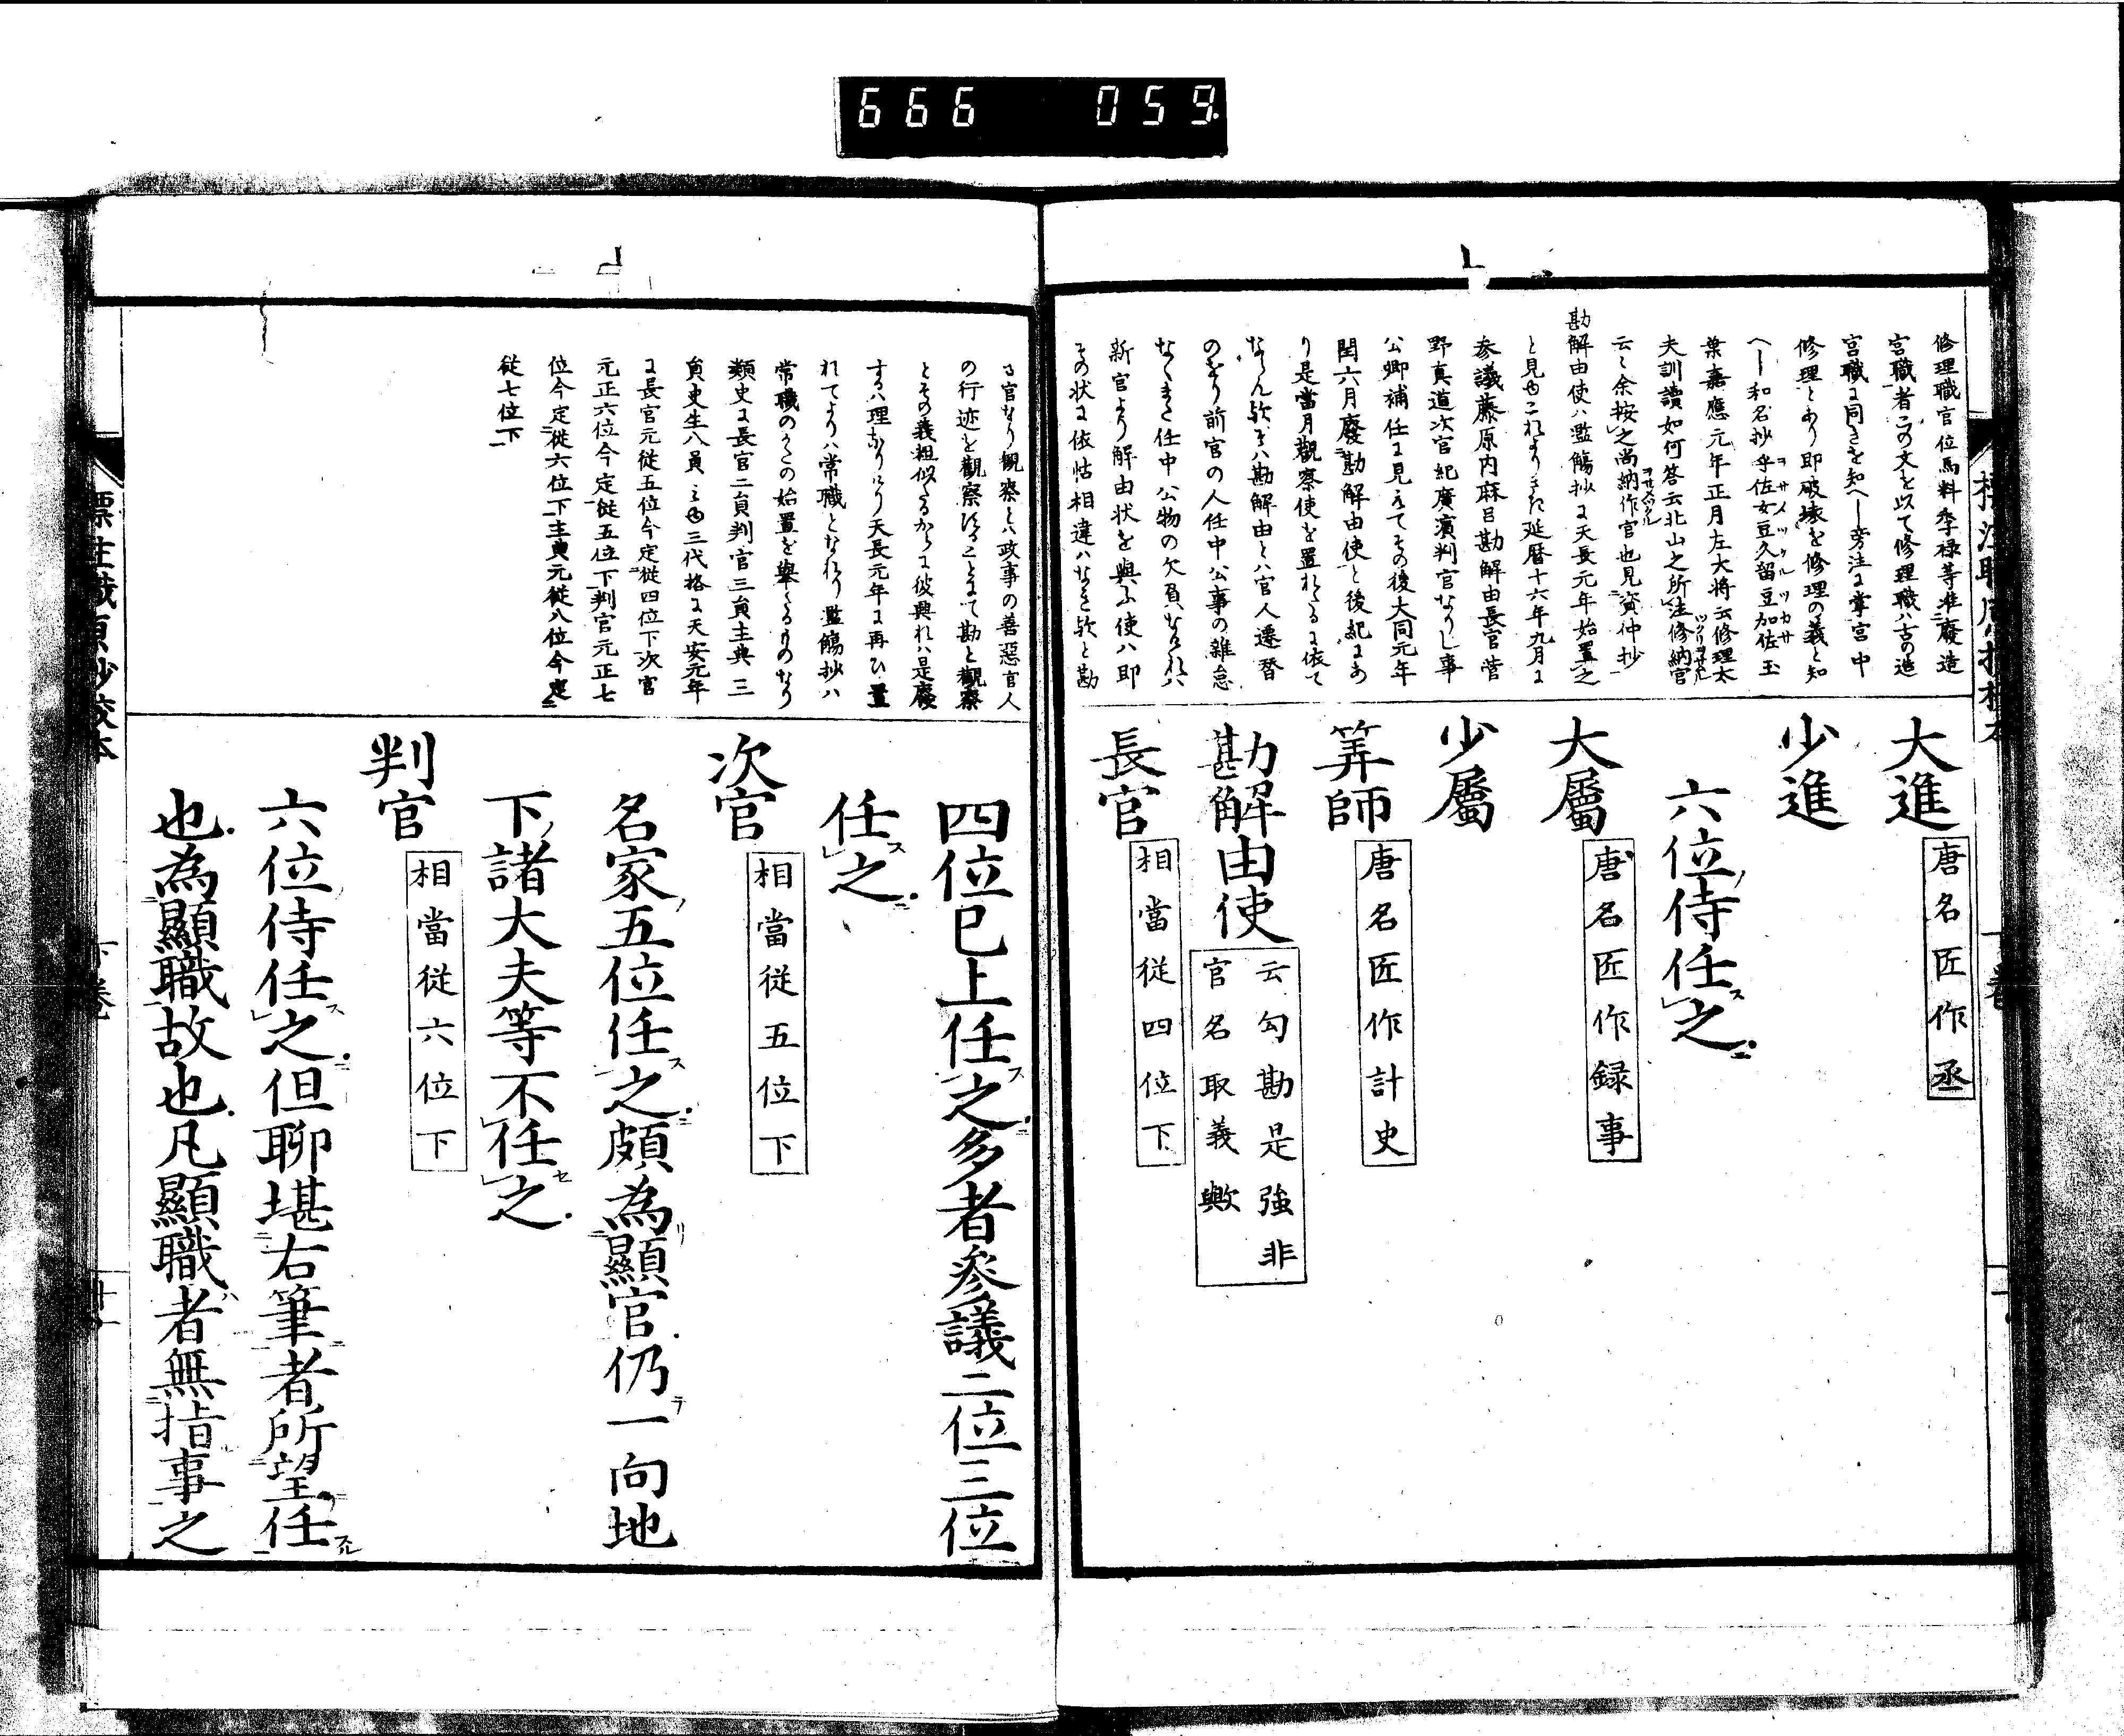 666 059
修理職官位馬料季禄等准廢造
宮職者この文を以て修理職ハ古の造
宮職に同きを知へし旁注に掌宮中
修理とあり即破壊を修理の義と知
へし和名抄乎佐女豆久留豆加佐玉
葉嘉應元年正月左大将云修理大
夫訓讀如何答云北山之所注修納官
云々余按之尚納作官也見資仲抄
勘解由使ハ濫觴抄に天長元年始置之
と見ゆこれよりさき延暦十六年九月に
参議藤原内麻呂勘解由長官菅
野真道次官紀廣濱判官なりし事
公卿補任に見えてその後大同元年
閏六月廢勘解由使と後紀にあ
り是當月觀察使を置れたるに依て
ならん歟さハ勘解由とハ官人遷替
のをり前官の人任中公事の雜怠
なくまた任中公物の欠負なけれハ
新官より解由状を與ふ使ハ即
その状に依怙相違ハなき歟と勘
大進 唐名匠作丞
少進
六位侍任之
大屬 唐名匠作録事
少屬
筭師 唐名匠作計史
勘解由使 云勾勘是強非
官名取義歟
長官 相當從四位下
る官なり觀察とハ政事の善惡官人
の行迹を觀察することにて勘と觀察
とその義粗似たるからに彼興れハ是廢
するハ理なりけり天長元年に再ひ置
れてよりハ常職となれり濫觴抄ハ
常職のかたの始置を舉たるものなり
類史に長官二員判官三員主典三
員史生八員とみゆ三代格に天安元年
に長官元從五位今定從四位下次官
元正六位今定從五位下判官元正七
位今定從六位下主典元從八位今定
從七位下
四位已上任之多者參議二位三位
任之
次官 相當從五位下
名家五位任之頗為顯官仍一向地
下諸大夫等不任之
判官 相當從六位下
六位侍任之但聊堪右筆者所望任
也為顯職故也凡顯職者無指事之
標注職原抄校本
下卷